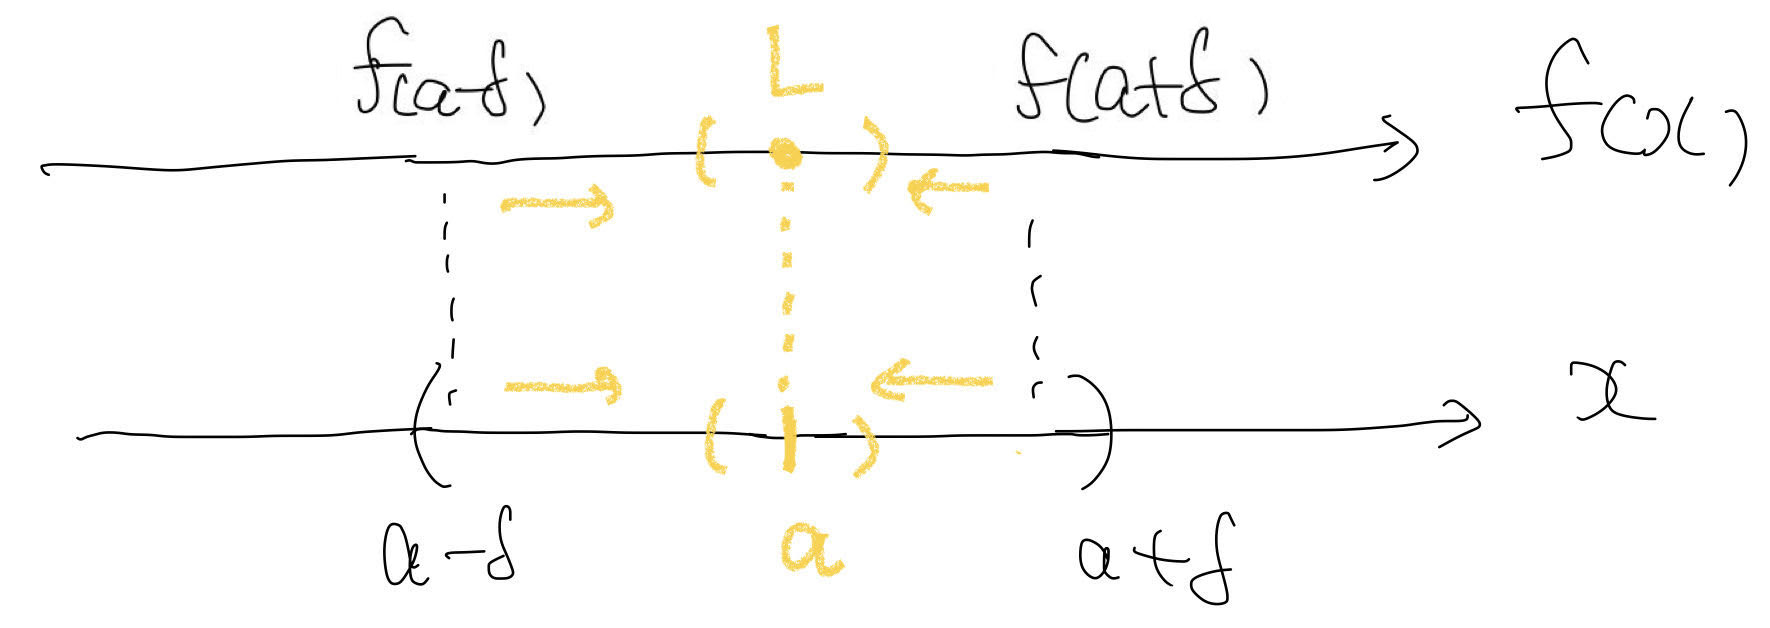 f(a-δ) L f(a+δ)
f(x)
( )
x
( ( ) )
a-δ a a+δ